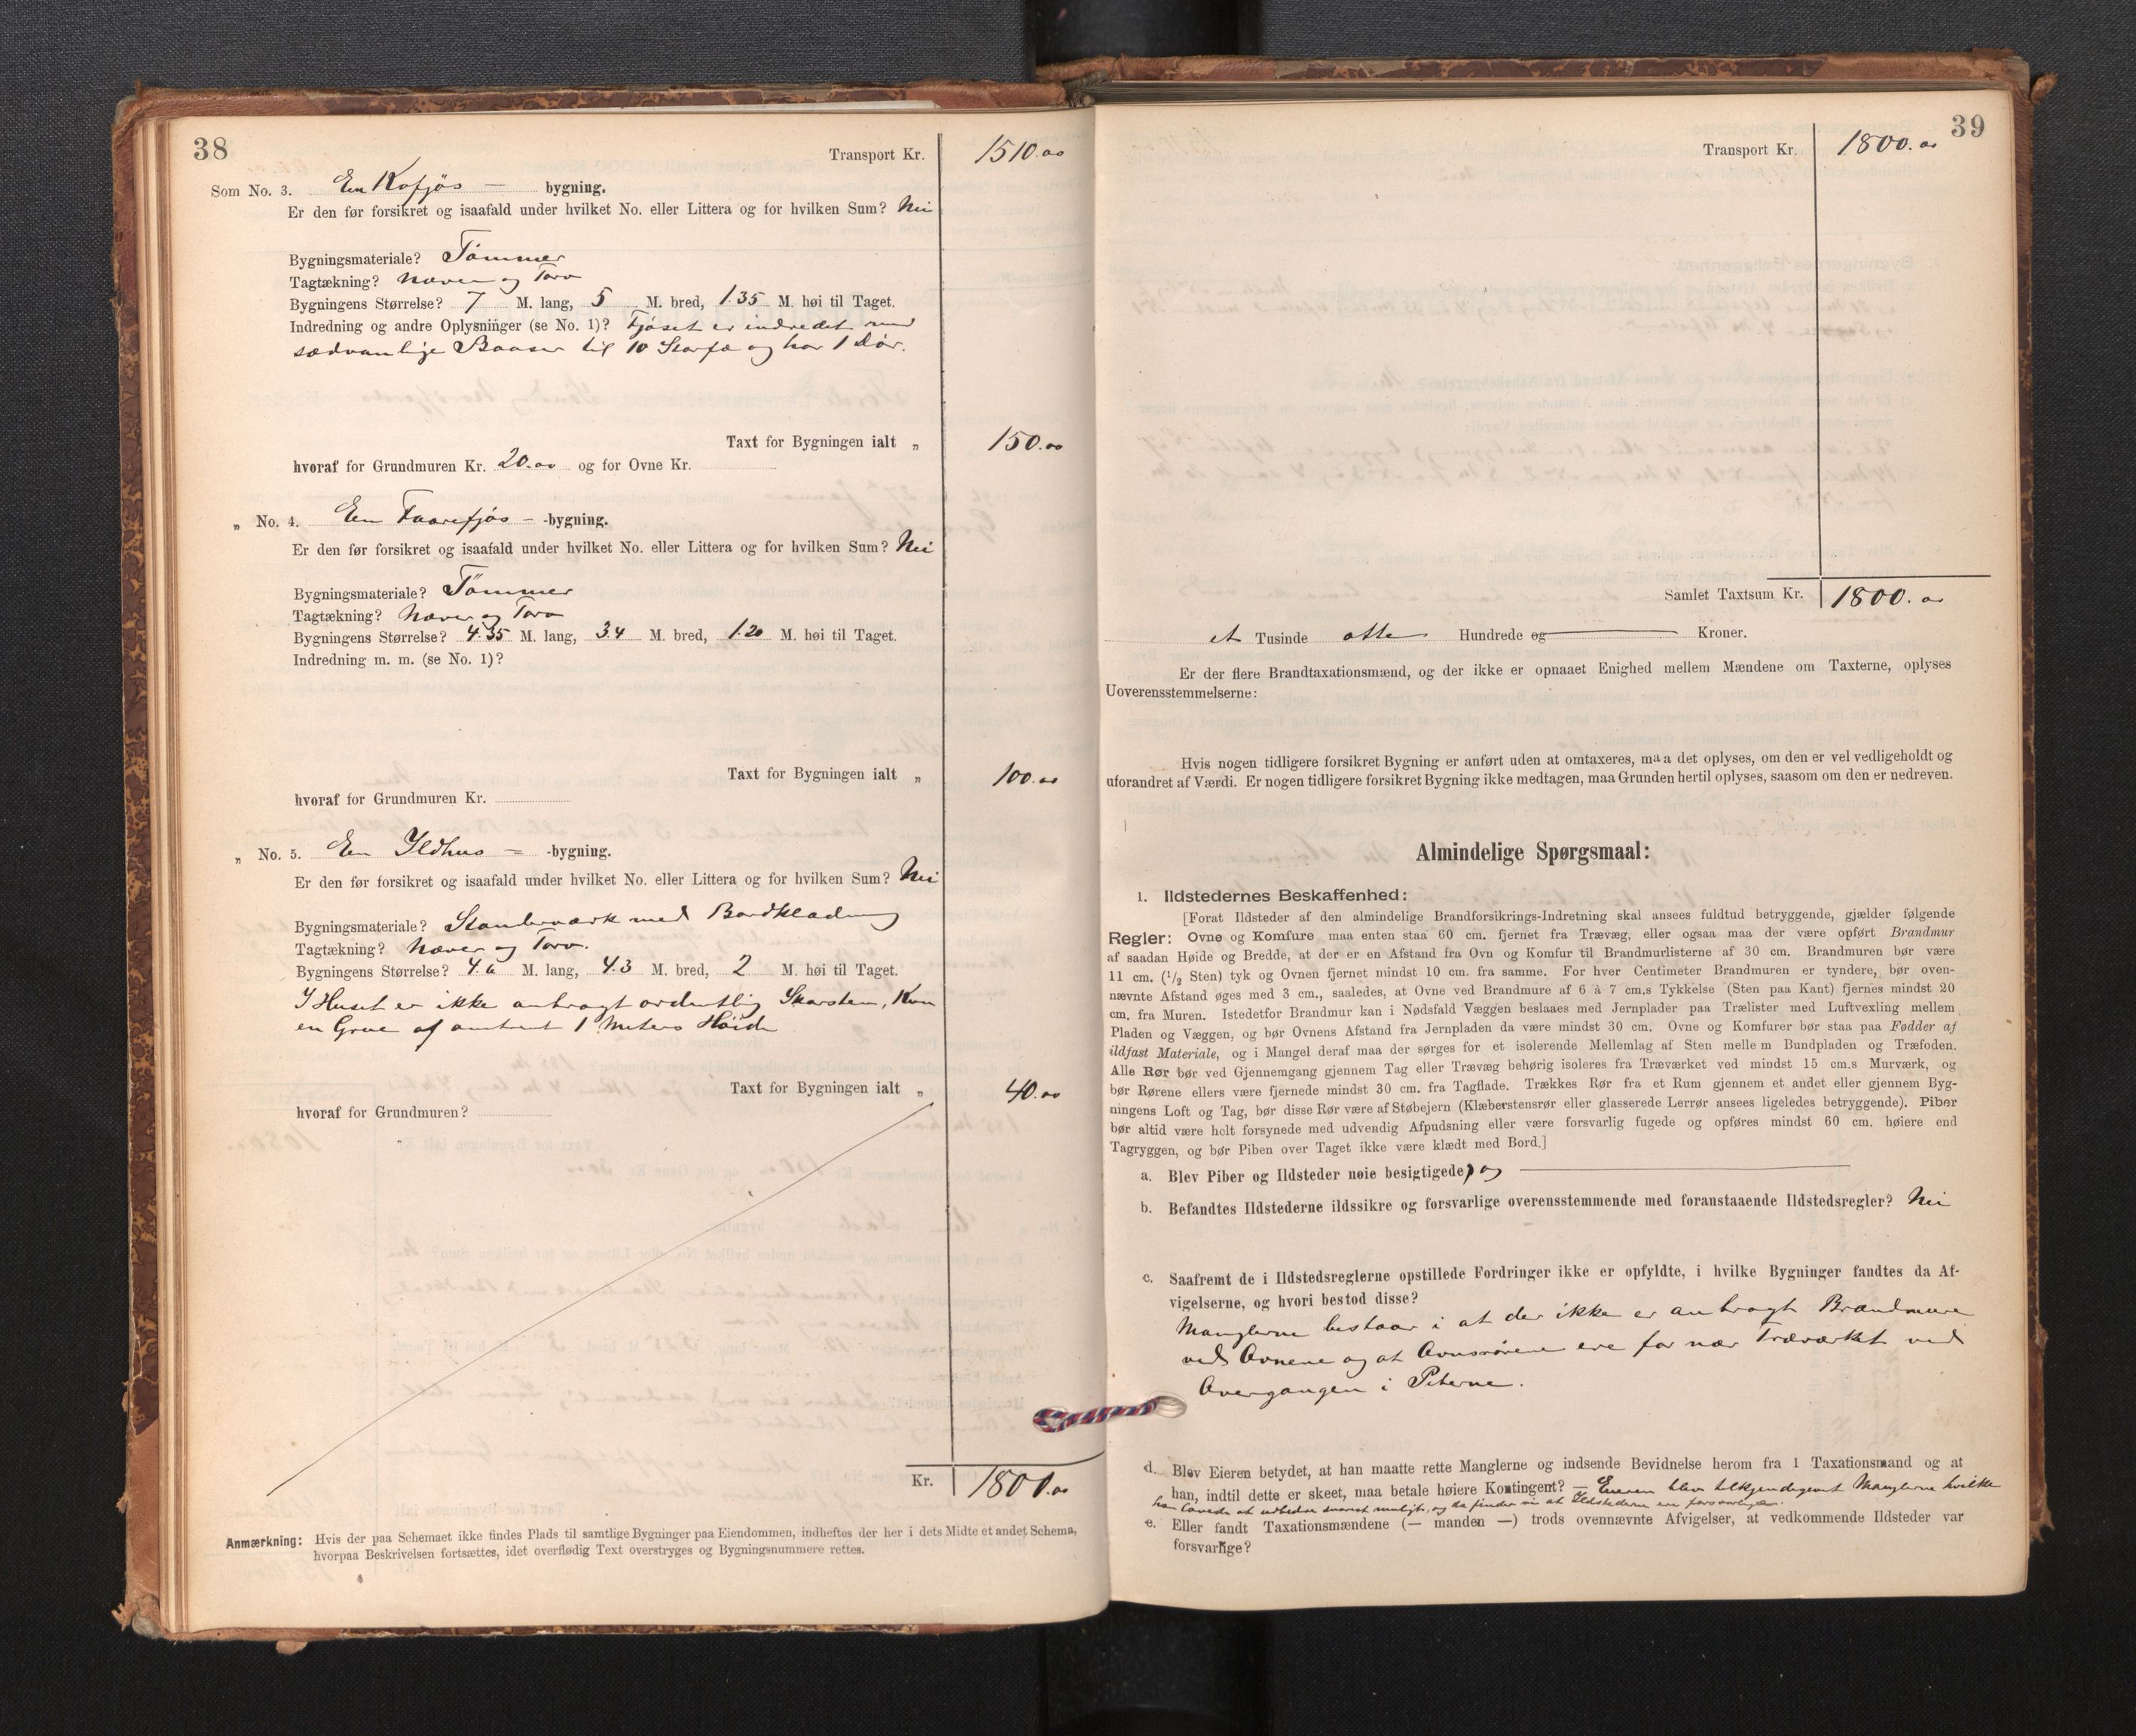 38
Transport Kr. 1510.00
Som No. 3. En Kofjøs — bygning.
Er den før forsikret og isaafald under hvilket No. eller Littera og for hvilken Sum? Nei
Bygningsmateriale? Tømmer
Tagtækning? Næver og Torv
Bygningens Størrelse? 7 M. lang, 5 M. bred, 1.35 M. høi til Taget.
Indredning og andre Oplysninger (se No. 1)? Fjøset er indredet med
sædvanlige Baaser til 10 Storfæ og har 1 Dør.
Taxt for Bygningen ialt „ 150.00
hvoraf for Grundmuren Kr. 20.00 og for Ovne Kr.
„ No. 4. En Faarefjøs — -bygning.
Er den før forsikret og isaafald under hvilket No. eller Littera og for hvilken Sum? Nei
Bygningsmateriale? Tømmer
Tagtækning? Næver og Torv
Bygningens Størrelse? 4.35 M. lang, 3.4 M. bred, 1.20 M. høi til Taget.
Indredning m. m. (se No. 1)?
Taxt for Bygningen ialt „ 100.00
hvoraf for Grundmuren Kr.
„ No. 5. En Ildhus — -bygning.
Er den før forsikret og isaafald under hvilket No. eller Littera og for hvilken Sum? Nei
Bygningsmateriale? Standerværk med Bordklædning
Tagtækning? Næver og Torv.
Bygningens Størrelse? 4.6 M. lang, 4.3 M. bred, 2 M. høi til Taget.
I Huset er ikke anbragt ordentlig Skorsten, Kun
en Grue af omtrent 1 Meters Høide
Taxt for Bygningen ialt „ 40.00
hvoraf for Grundmuren?
Kr. 1800.00
Anmærkning: Hvis der paa Schemaet ikke findes Plads til samtlige Bygninger paa Eiendommen, indheftes der her i dets Midte et andet Schema,
hvorpaa Beskrivelsen fortsættes, idet overflødig Text overstryges og Bygningsnummere rettes.
39
Transport Kr. 1800.00
Samlet Taxtsum Kr. 1800.00
et Tusinde otte Hundrede og — Kroner.
Er der flere Brandtaxationsmænd, og der ikke er opnaaet Enighed mellem Mændene om Taxterne, oplyses
Uoverensstemmelserne:
Hvis nogen tidligere forsikret Bygning er anført uden at omtaxeres, maa det oplyses, om den er vel vedligeholdt og
uforandret af Værdi. Er nogen tidligere forsikret Bygning ikke medtagen, maa Grunden hertil oplyses, saasom om den er nedreven.
Almindelige Spørgsmaal:
1. Ildstedernes Beskaffenhed:
[Forat Ildsteder af den almindelige Brandforsikrings-Indretning skal ansees fuldtud betryggende, gjælder følgende
Regler: Ovne og Komfure maa enten staa 60 cm. fjernet fra Trævæg, eller ogsaa maa der være opført Brandmur
af saadan Høide og Bredde, at der er en Afstand fra Ovn og Komfur til Brandmurlisterne af 30 cm. Brandmuren bør være
11 cm. (1/2 Sten) tyk og Ovnen fjernet mindst 10 cm. fra samme. For hver Centimeter Brandmuren er tyndere, bør oven-
nævnte Afstand øges med 3 cm., saaledes, at Ovne ved Brandmure af 6 à 7 cm.s Tykkelse (Sten paa Kant) fjernes mindst 20
cm. fra Muren. Istedetfor Brandmur kan i Nødsfald Væggen beslaaes med Jernplader paa Trælister med Luftvexling mellem
Pladen og Væggen, og bør Ovnens Afstand fra Jernpladen da være mindst 30 cm. Ovne og Komfurer bør staa paa Fødder af
ildfast Materiale, og i Mangel deraf maa der sørges for et isolerende Mellemlag af Sten mellem Bundpladen og Træfoden.
Alle Rør bør ved Gjennemgang gjennem Tag eller Trævæg behørig isoleres fra Træværket ved mindst 15 cm.s Murværk, og
bør Rørene ellers være fjernede mindst 30 cm. fra Tagflade. Trækkes Rør fra et Rum gjennem et andet eller gjennem Byg-
ningens Loft og Tag, bør disse Rør være af Støbejern (Klæberstensrør eller glasserede Lerrør ansees ligeledes betryggende). Piber
bør altid være helt forsynede med udvendig Afpudsning eller være forsvarlig fugede og opføres mindst 60 cm. høiere end
Tagryggen, og bør Piben over Taget ikke være klædt med Bord.]
a. Blev Piber og Ildsteder nøie besigtigede?
b. Befandtes Ildstederne ildssikre og forsvarlige overensstemmende med foranstaaende Ildstedsregler? Nei
c. Saafremt de i Ildstedsreglerne opstillede Fordringer ikke er opfyldte, i hvilke Bygninger fandtes da Af-
vigelserne, og hvori bestod disse?
Manglerne bestaar i at der ikke er anbragt Brandmure
ved Ovnene og at Ovnsrørene ere for nær Træværket ved
Overgangen i Piberne.
d. Blev Eieren betydet, at han maatte rette Manglerne og indsende Bevidnelse herom fra 1 Taxationsmand og at
han, indtil dette er skeet, maa betale høiere Kontingent? — Eieren blev tilkjendegivet Manglerne hvilke
han lovede at udbedre snarest muligt, og da finder vi at Ildstederne ere forsvarlige.
e. Eller fandt Taxationsmændene (— manden —) trods ovennævnte Afvigelser, at vedkommende Ildsteder var
forsvarlige?